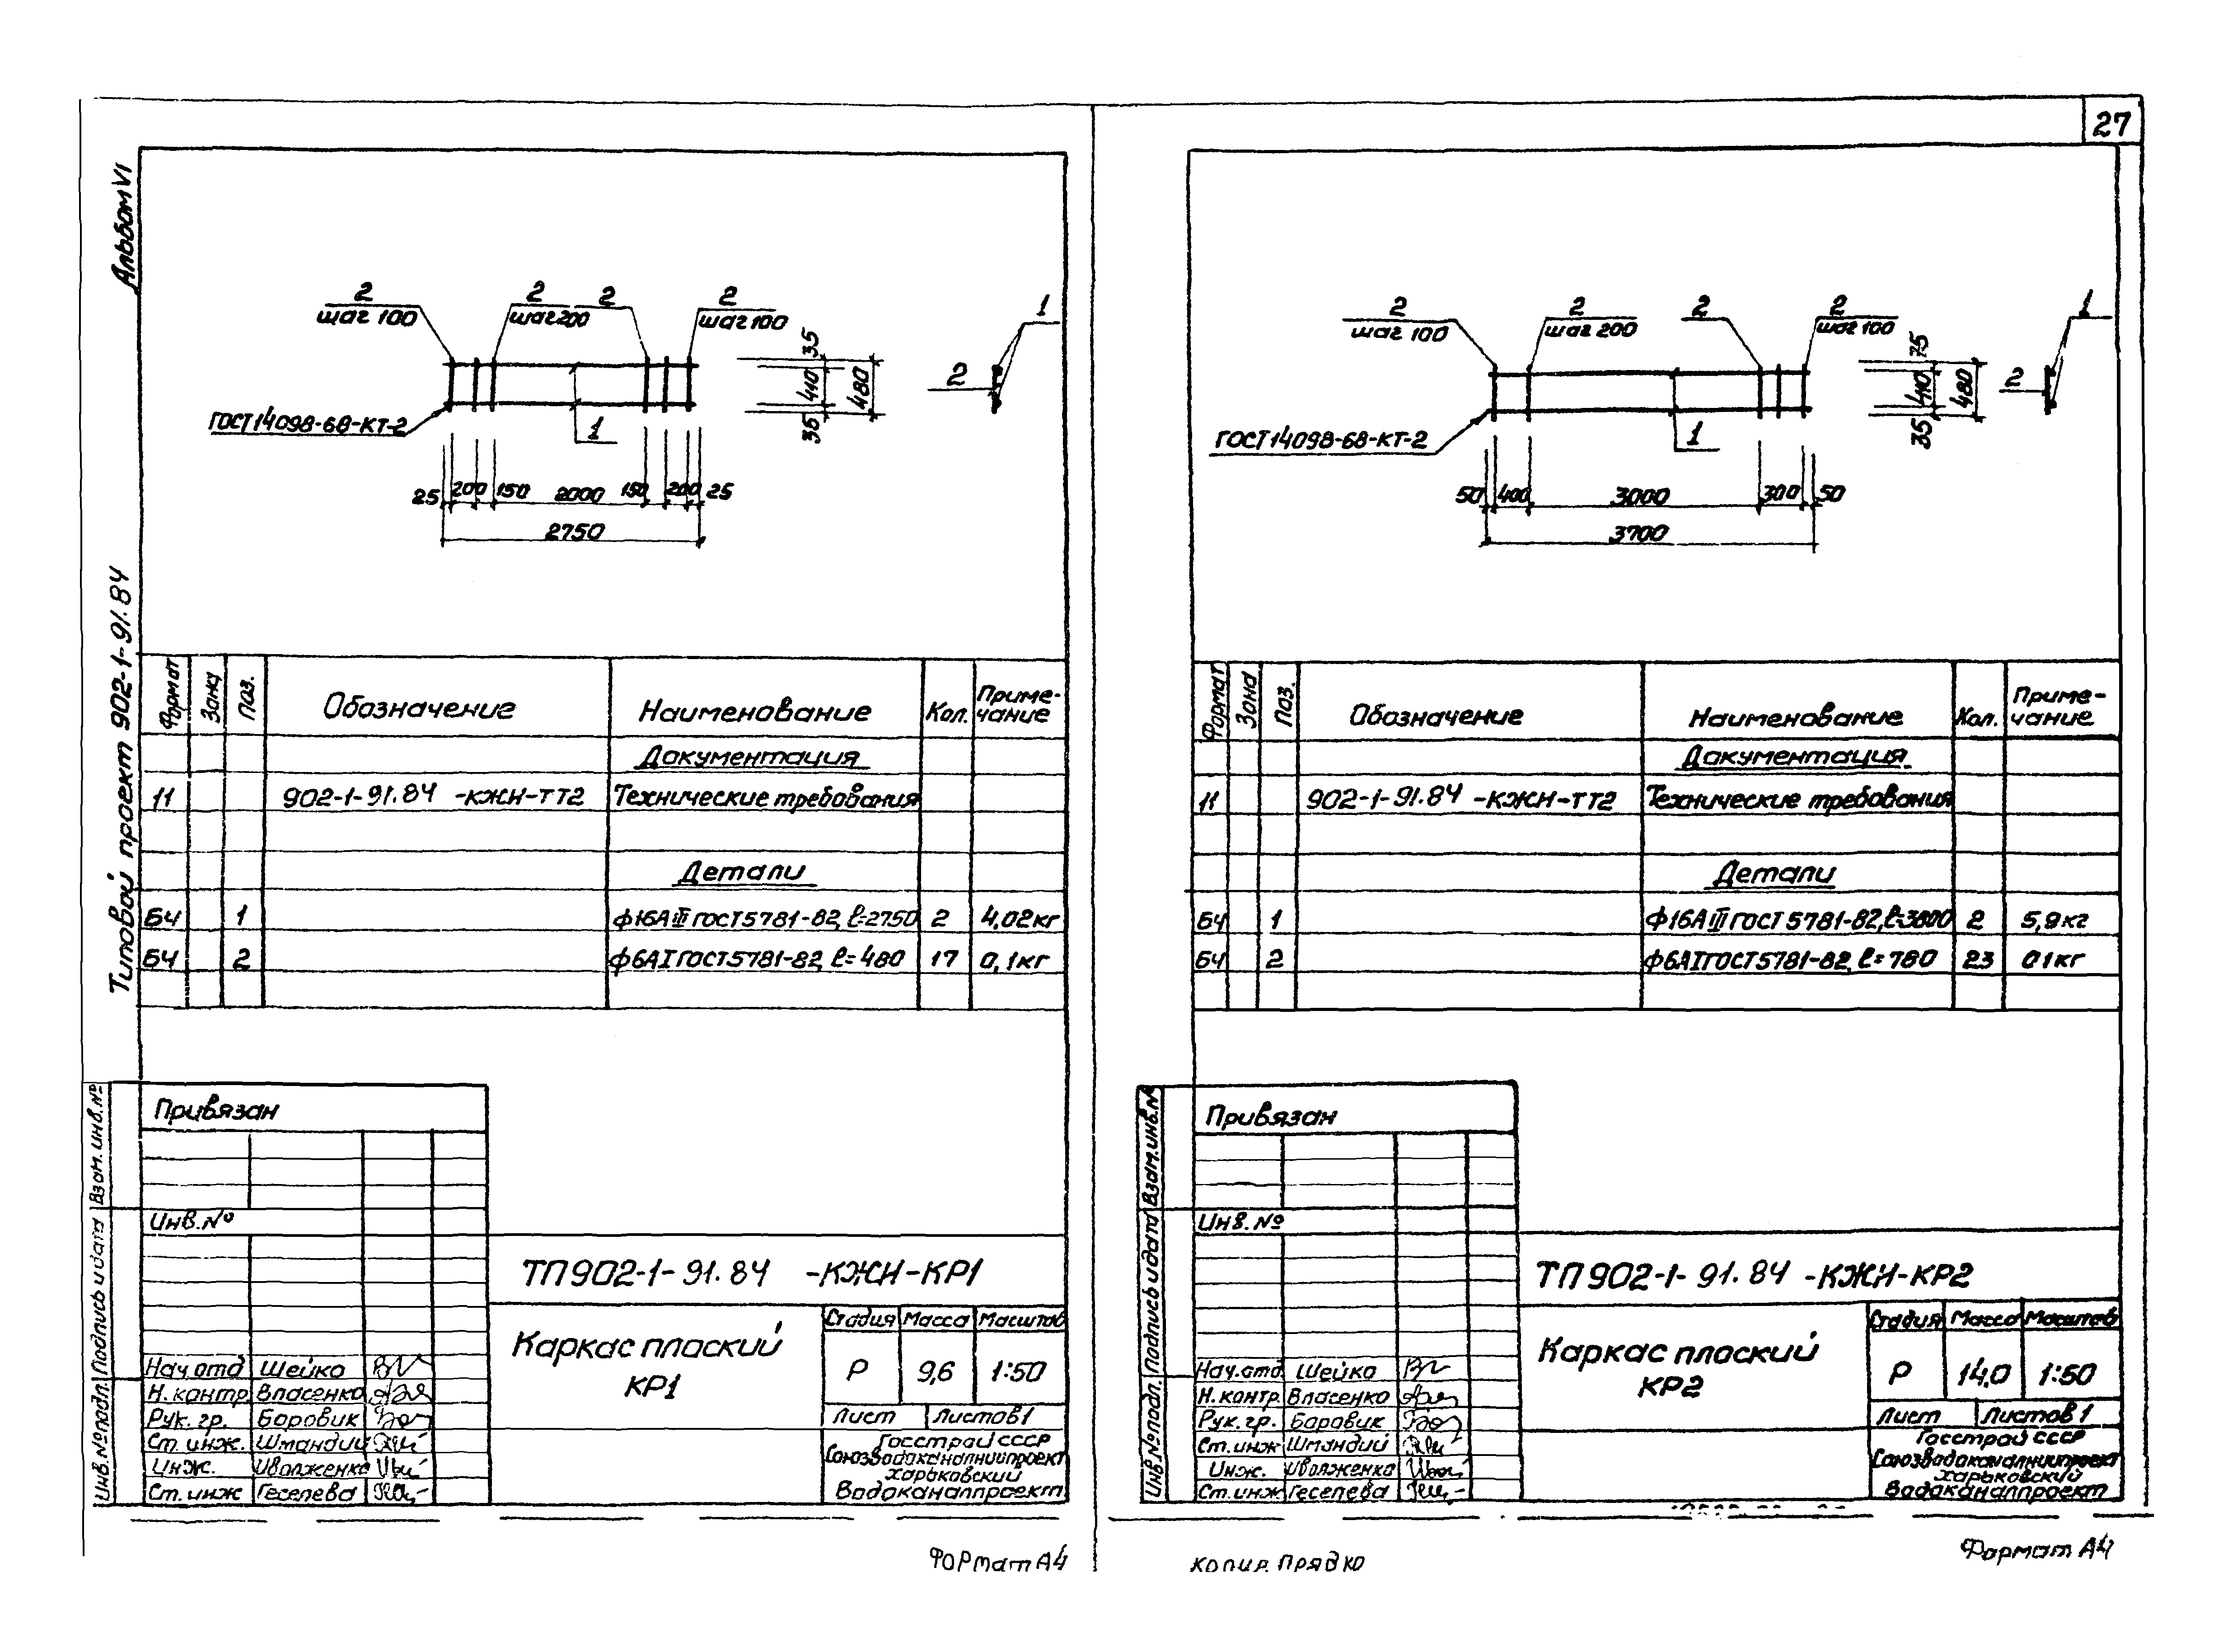 27
Альбом VI
Типовой проект 902-1-91.84
2
шаг 100
2
шаг 200
2
2
шаг 100
1
2
ГОСТ 14098-68-КТ-2
1
35
410
35
480
25 200 150 2000 150 200 25
2750
Формат Зона Поз. Обозначение Наименование Кол. Приме-
чание
Документация
11 902-1-91.84 -КЖИ-ТТ2 Технические требования
Детали
БЧ 1 ф16АIII ГОСТ 5781-82, ℓ=2750 2 4,02кг
БЧ 2 ф6АI ГОСТ 5781-82, ℓ=480 17 0,1кг
Привязан
Инв.№
Инв.№ подл. Подпись и дата Взам. инв.№
ТП 902-1-91.84 -КЖИ-КР1
Каркас плоский
КР1
Стадия Масса Масштаб
Р 9,6 1:50
Лист Листов 1
Госстрой СССР
Союзводоканалниипроект
Харьковский
Водоканалпроект
Нач.отд Шейко
Н.контр. Власенко
Рук. гр. Боровик
Ст. инж. Шмандий
Инж. Иволженко
Ст. инж Геселева
Формат А4
2
шаг 100
2
шаг 200
2
2
шаг 100
1
2
ГОСТ 14098-68-КТ-2
1
75
410
35
480
50 400 3000 300 50
3700
Формат Зона Поз. Обозначение Наименование Кол. Приме-
чание
Документация
11 902-1-91.84 -КЖИ-ТТ2 Технические требования
Детали
БЧ 1 ф16АIII ГОСТ 5781-82, ℓ=3800 2 5,9кг
БЧ 2 ф6АI ГОСТ 5781-82, ℓ=780 23 01кг
Привязан
Инв. №
Инв.№ подл. Подпись и дата Взам.инв.№
ТП 902-1-91.84 -КЖИ-КР2
Каркас плоский
КР2
Стадия Масса Масштаб
Р 14,0 1:50
Лист Листов 1
Госстрой СССР
Союзводоканалниипроект
Харьковский
Водоканалпроект
Нач.отд Шейко
Н.контр. Власенко
Рук.гр. Боровик
Ст.инж Шмандий
Инж. Иволженко
Ст.инж Геселева
Копир. Прядко
Формат А4